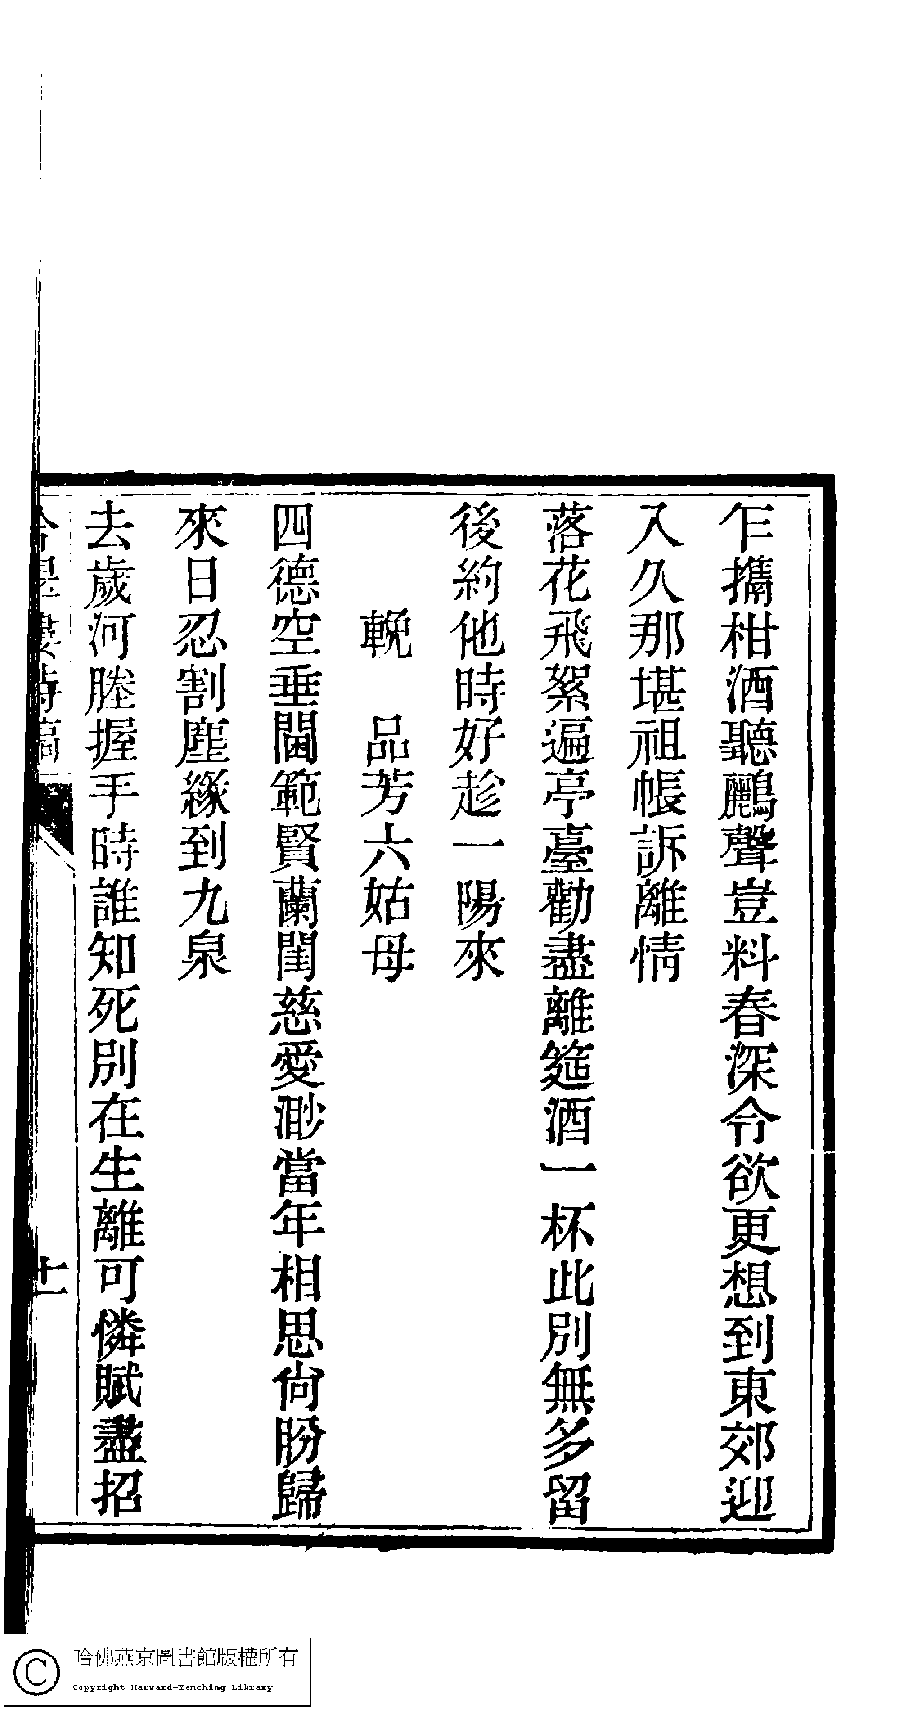 乍攜柑酒聽鸝聲豈料春深令欲更想到東郊迎
入久那堪祖帳訴離情
落花飛絮遍亭臺勸盡離筵酒一杯此別無多留
後約他時好趁一陽來
輓　品芳六姑母
四德空垂閫範賢蘭閨慈愛渺當年相思尙盼歸
來日忍割塵緣到九泉
去歲河塍握手時誰知死別在生離可憐賦盡招
詩稿
十一
哈佛燕京圖書館版權所有
Copyright Harvard-Yenching Library